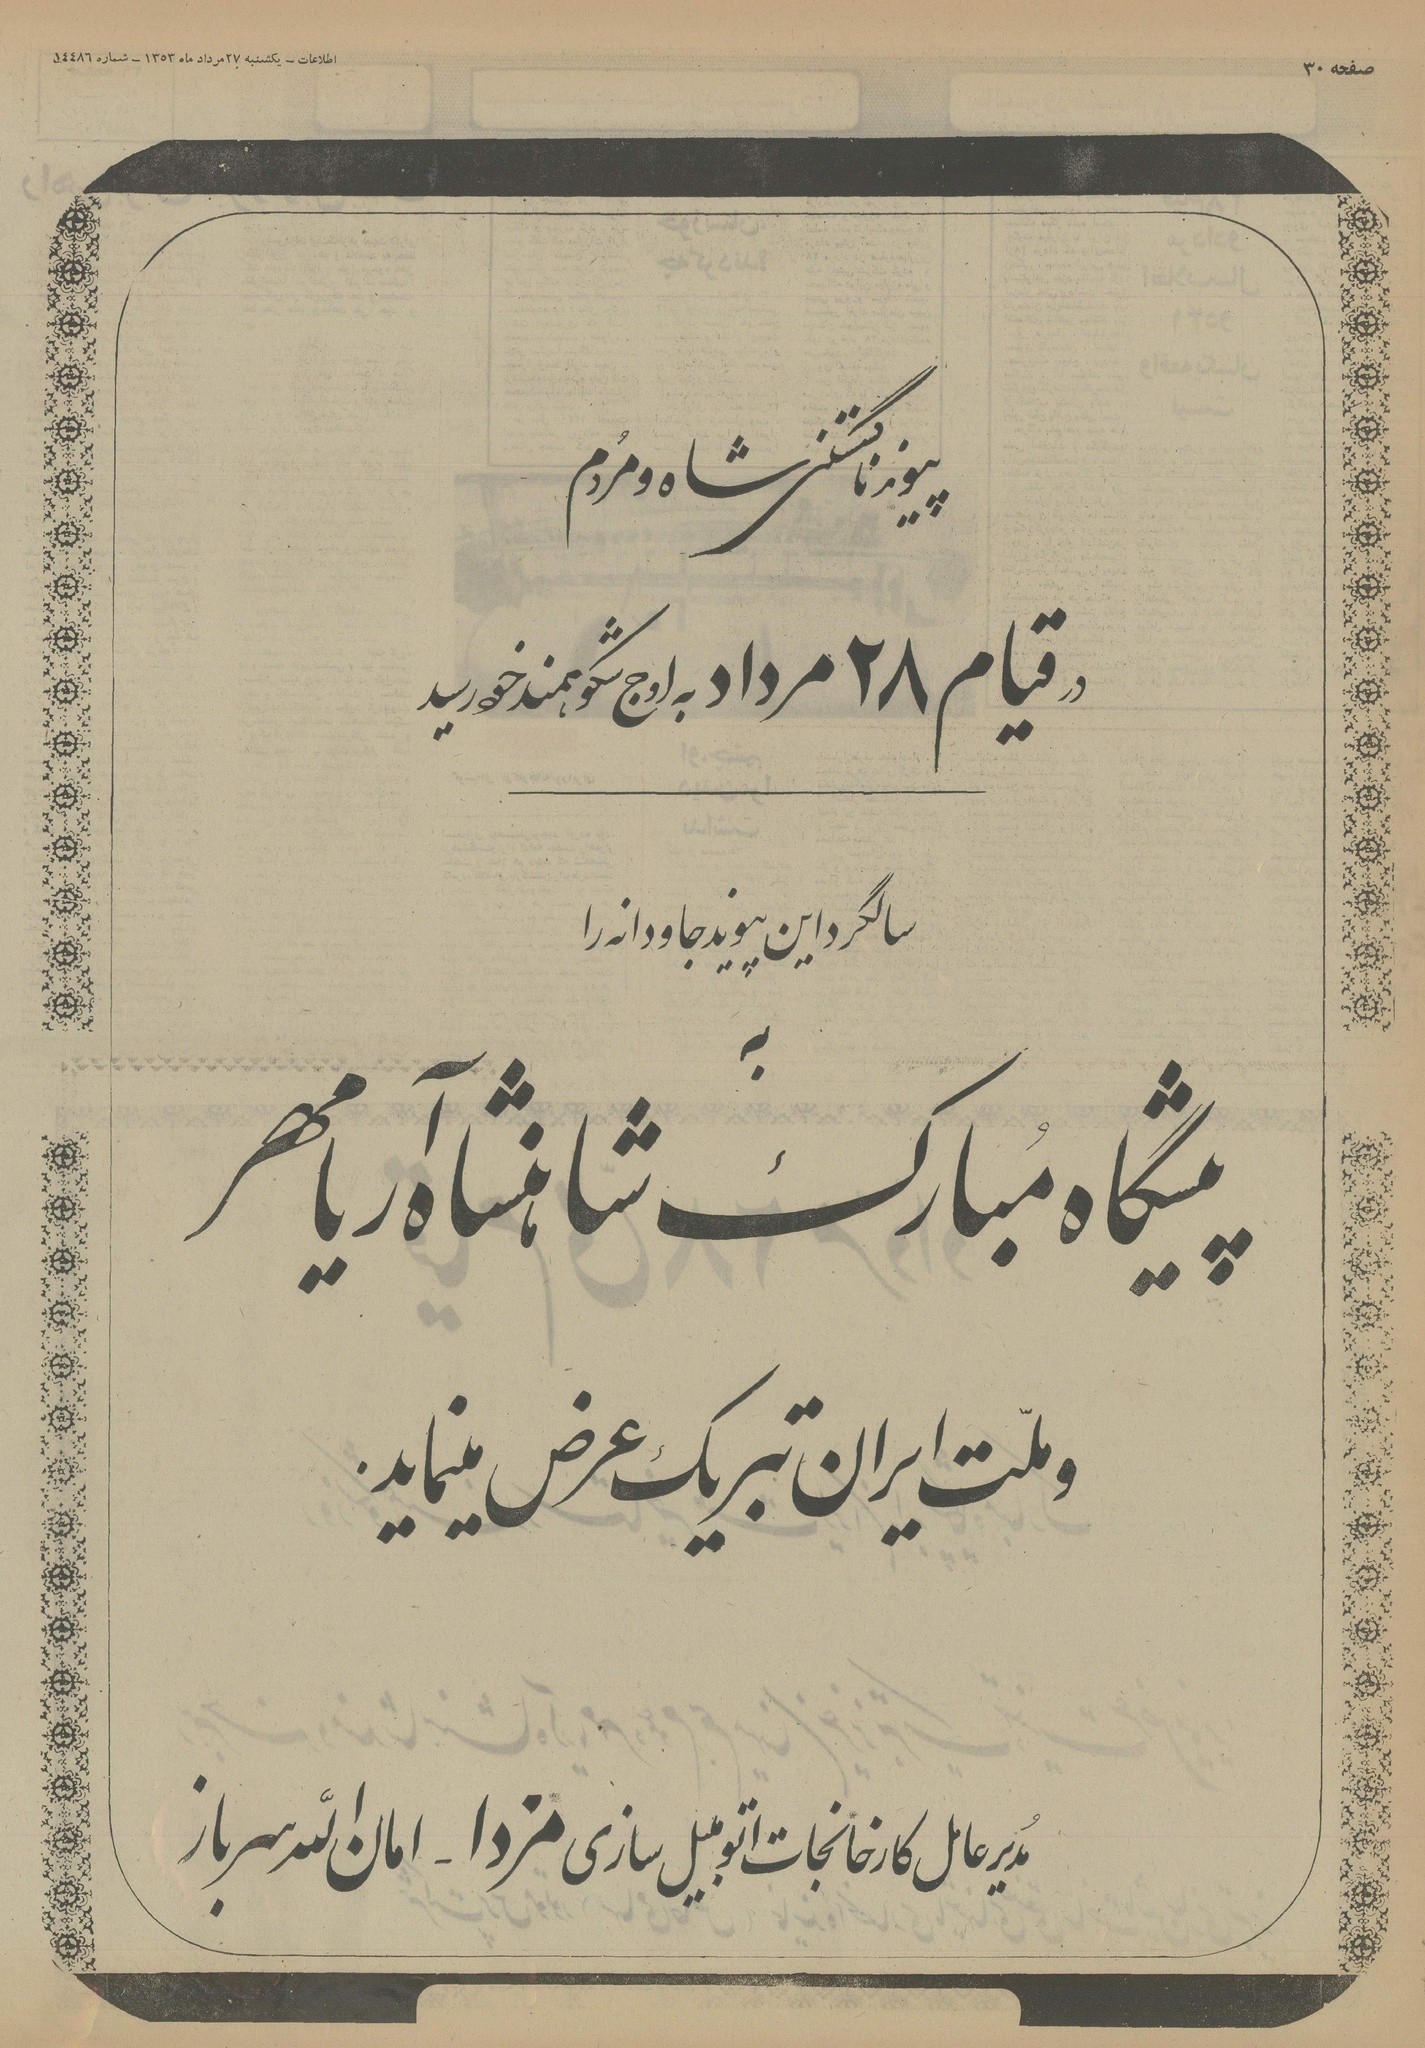 صفحه ۳۰
اطلاعات – یکشنبه ۲۷ مرداد ماه ۱۳۵۳ – شماره ۱٤٤٨٦
پیوند ناگسستنی شاه و مُردم
در قیام ۲۸ مرداد به اوج شکوهمند خود رسید
سالگرد این پیوند جاودانه را
به
پیشگاه مُبارک شاهنشاه آریامهر
و ملّت ایران تبریک عرض مینماید.
مُدیر عامل کارخانجات اتومبیل سازی مزدا - امان الله سرباز